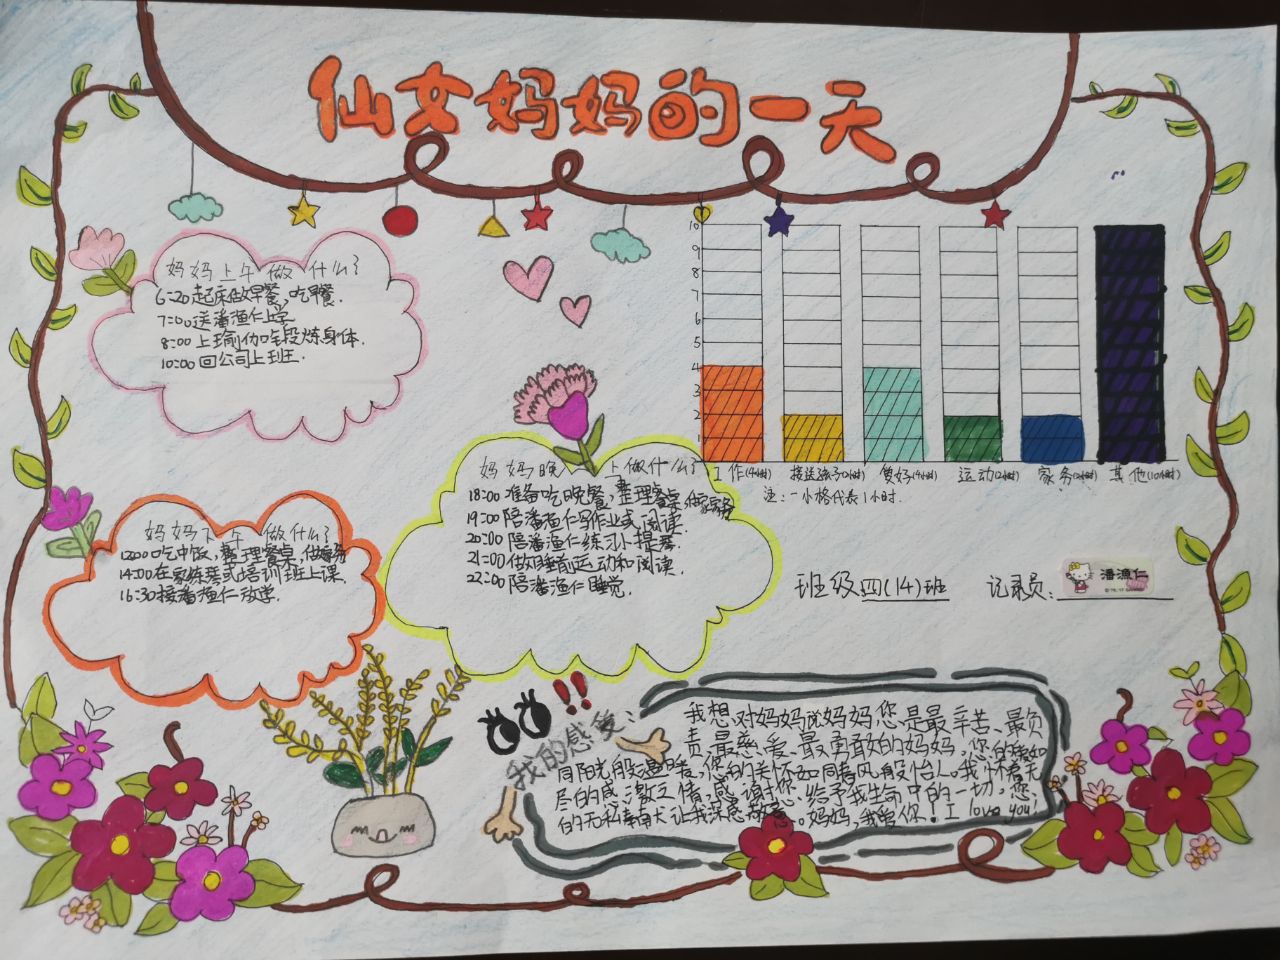 仙女妈妈的一天
妈妈上午做什么?
6:20起床做早餐,吃早餐.
7:00送潘渔仁上学
8:00上瑜伽课锻炼身体.
10:00回公司上班.
10
9
8
7
6
5
4
3
2
1
工作(4小时) 接送孩子(2小时) 爱好(4小时) 运动(2小时) 家务(2小时) 其他(10小时)
注:一小格代表1小时.
妈妈晚上做什么?
18:00准备吃晚餐,整理餐桌,做家务
19:00陪潘渔仁写作业或阅读.
20:00陪潘渔仁练习小提琴.
21:00做睡前运动和阅读.
22:00陪潘渔仁睡觉.
妈妈下午做什么?
12:00吃中饭,整理餐桌,做家务
14:00在家练琴或培训班上课.
16:30接潘渔仁放学.
班级四(14)班 记录员: 潘渔仁
我的感受:
我想对妈妈说妈妈,您是最辛苦、最负
责、最慈爱、最勇敢的妈妈,您的爱如
同阳光般温暖,您的关怀如同春风般怡人。我怀着无
尽的感激之情,感谢您给予我生命中的一切,您
的无私奉献让我深感敬意。妈妈,我爱你!I love you!